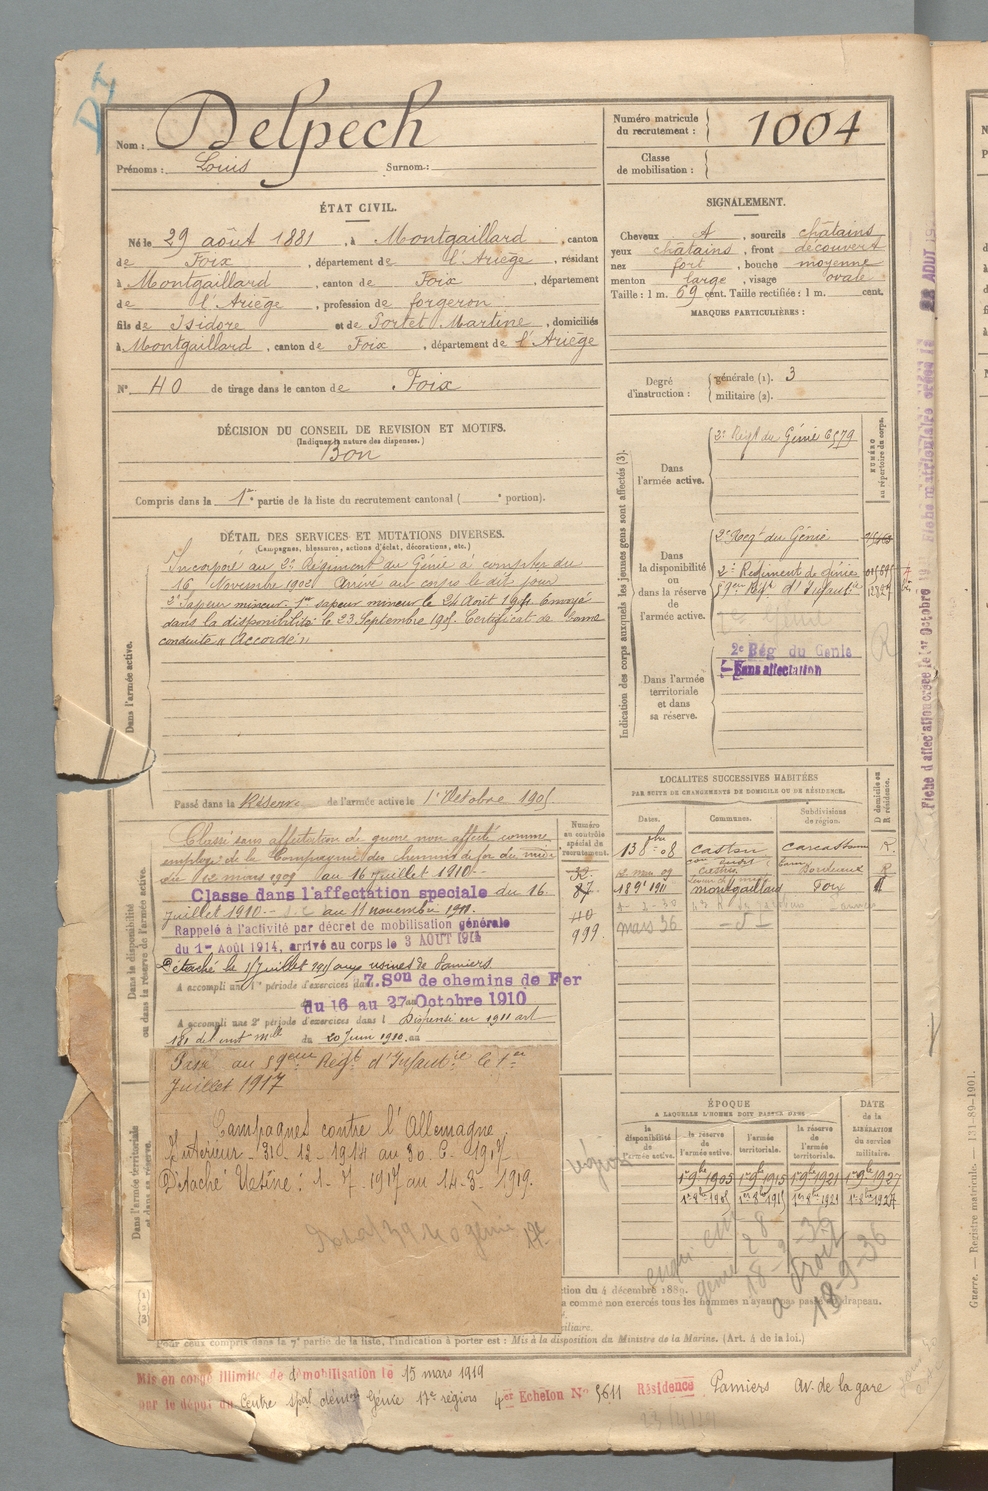 Nom : Delpech
Prénoms : Louis Surnom :
Numéro matricule du recrutement : 1004
Classe de mobilisation :
ÉTAT CIVIL.
Né le 29 août 1881, à Montgaillard, canton
de Foix, département de l'Ariège, résidant
à Montgaillard, canton de Foix, département
de l'Ariège, profession de forgeron
fils de Isidore et de Portet Martine, domiciliés
à Montgaillard, canton de Foix, département de l'Ariège
N° 40 de tirage dans le canton de Foix
SIGNALEMENT.
Cheveux, sourcils châtains
yeux châtains, front découvert
nez fort, bouche moyenne
menton large, visage ovale
Taille : 1 m. 69 cent. Taille rectifiée : 1 m. cent.
MARQUES PARTICULIÈRES :
Degré d'instruction : générale (1). 3
militaire (2).
DÉCISION DU CONSEIL DE REVISION ET MOTIFS.
(Indiquer la nature des dispenses.)
Bon
Compris dans la 1re partie de la liste du recrutement cantonal ( portion).
DÉTAIL DES SERVICES ET MUTATIONS DIVERSES.
(Campagnes, blessures, actions d'éclat, décorations, etc.)
Dans l'armée active.
Incorporé au 2e Régiment du Génie à compter du
16 Novembre 1902 Arrivé au corps le dit jour
2e Sapeur mineur. 1er sapeur mineur le 24 Août Envoyé
dans la disponibilité le 23 Septembre 1905 Certificat de bonne
conduite "Accordé"
Passé dans la Réserve de l'armée active le 1er Octobre 1905
Dans la disponibilité ou dans la réserve de l'armée active.
Classé sans affectation de guerre non affecté comme
employé de la Compagnie des chemins de fer du midi
du 12 mars 1909 au 16 juillet 1910
Classe dans l'affectation speciale du 16
juillet 1910 au 11 novembre 1911
Rappelé à l'activité par décret de mobilisation générale
du 1er Août 1914, arrivé au corps le 3 AOUT 1914
Détaché le juillet aux usines de Pamiers
A accompli une 1re période d'exercices dans 7. Son de chemins de Fer
du 16 au 27 Octobre 1910
A accompli une 2e période d'exercices dans l Dispensé en 1911 art
du 20 Juin 1910
Passé au 59eme Regt d'Infantie le 1er
Juillet 1917
Campagnes contre l'Allemagne
Intérieur
Détaché Usine : 1-7-1917 au 14-3-1919.
Dans l'armée territoriale et dans sa réserve.
Indication des corps auxquels les jeunes gens sont affectés (3).
NUMÉRO au répertoire du corps.
Dans l'armée active.
2e Régt du Génie 6579
Dans la disponibilité ou dans la réserve de l'armée active.
2e Regt du Génie
2e Régiment de Génie
59eme Regt d'Infantie
2e Rég du Genie
Sans affectation
Dans l'armée territoriale et dans sa réserve.
Numéro au contrôle spécial du recrutement.
87
40
999
LOCALITES SUCCESSIVES HABITÉES
PAR SUITE DE CHANGEMENTS DE DOMICILE OU DE RÉSIDENCE.
Dates. Communes. Subdivisions de région. D domicile ou R résidence.
13 8bre 08 Carcassonne R
mars 09 Castres Bordeaux R
1911 montgaillard Foix
mars 36
ÉPOQUE
A LAQUELLE L'HOMME DOIT PASSER DANS
la disponibilité de l'armée active. la réserve de l'armée active. l'armée territoriale. la réserve de l'armée territoriale.
DATE de la LIBÉRATION du service militaire.
1er 9bre 1905 1er 9bre 1915 1er 9bre 1921 1er 9bre 1927
18-9-36
tion du 4 décembre 1889.
comme non exercés tous les hommes n'ayant pas passé au drapeau.
Pour ceux compris dans la 7e partie de la liste, l'indication à porter est : Mis à la disposition du Ministre de la Marine. (Art. 4 de la loi.)
Mis en congé illimité de démobilisation le 15 mars 1919
par le dépôt du Centre spal Génie 17e région 4er Echelon N° 5611 Résidence Pamiers Av. de la gare
Fiche d'affectation créée le 1er Octobre 19
Guerre. — Registre matricule. — 131-89-1901.